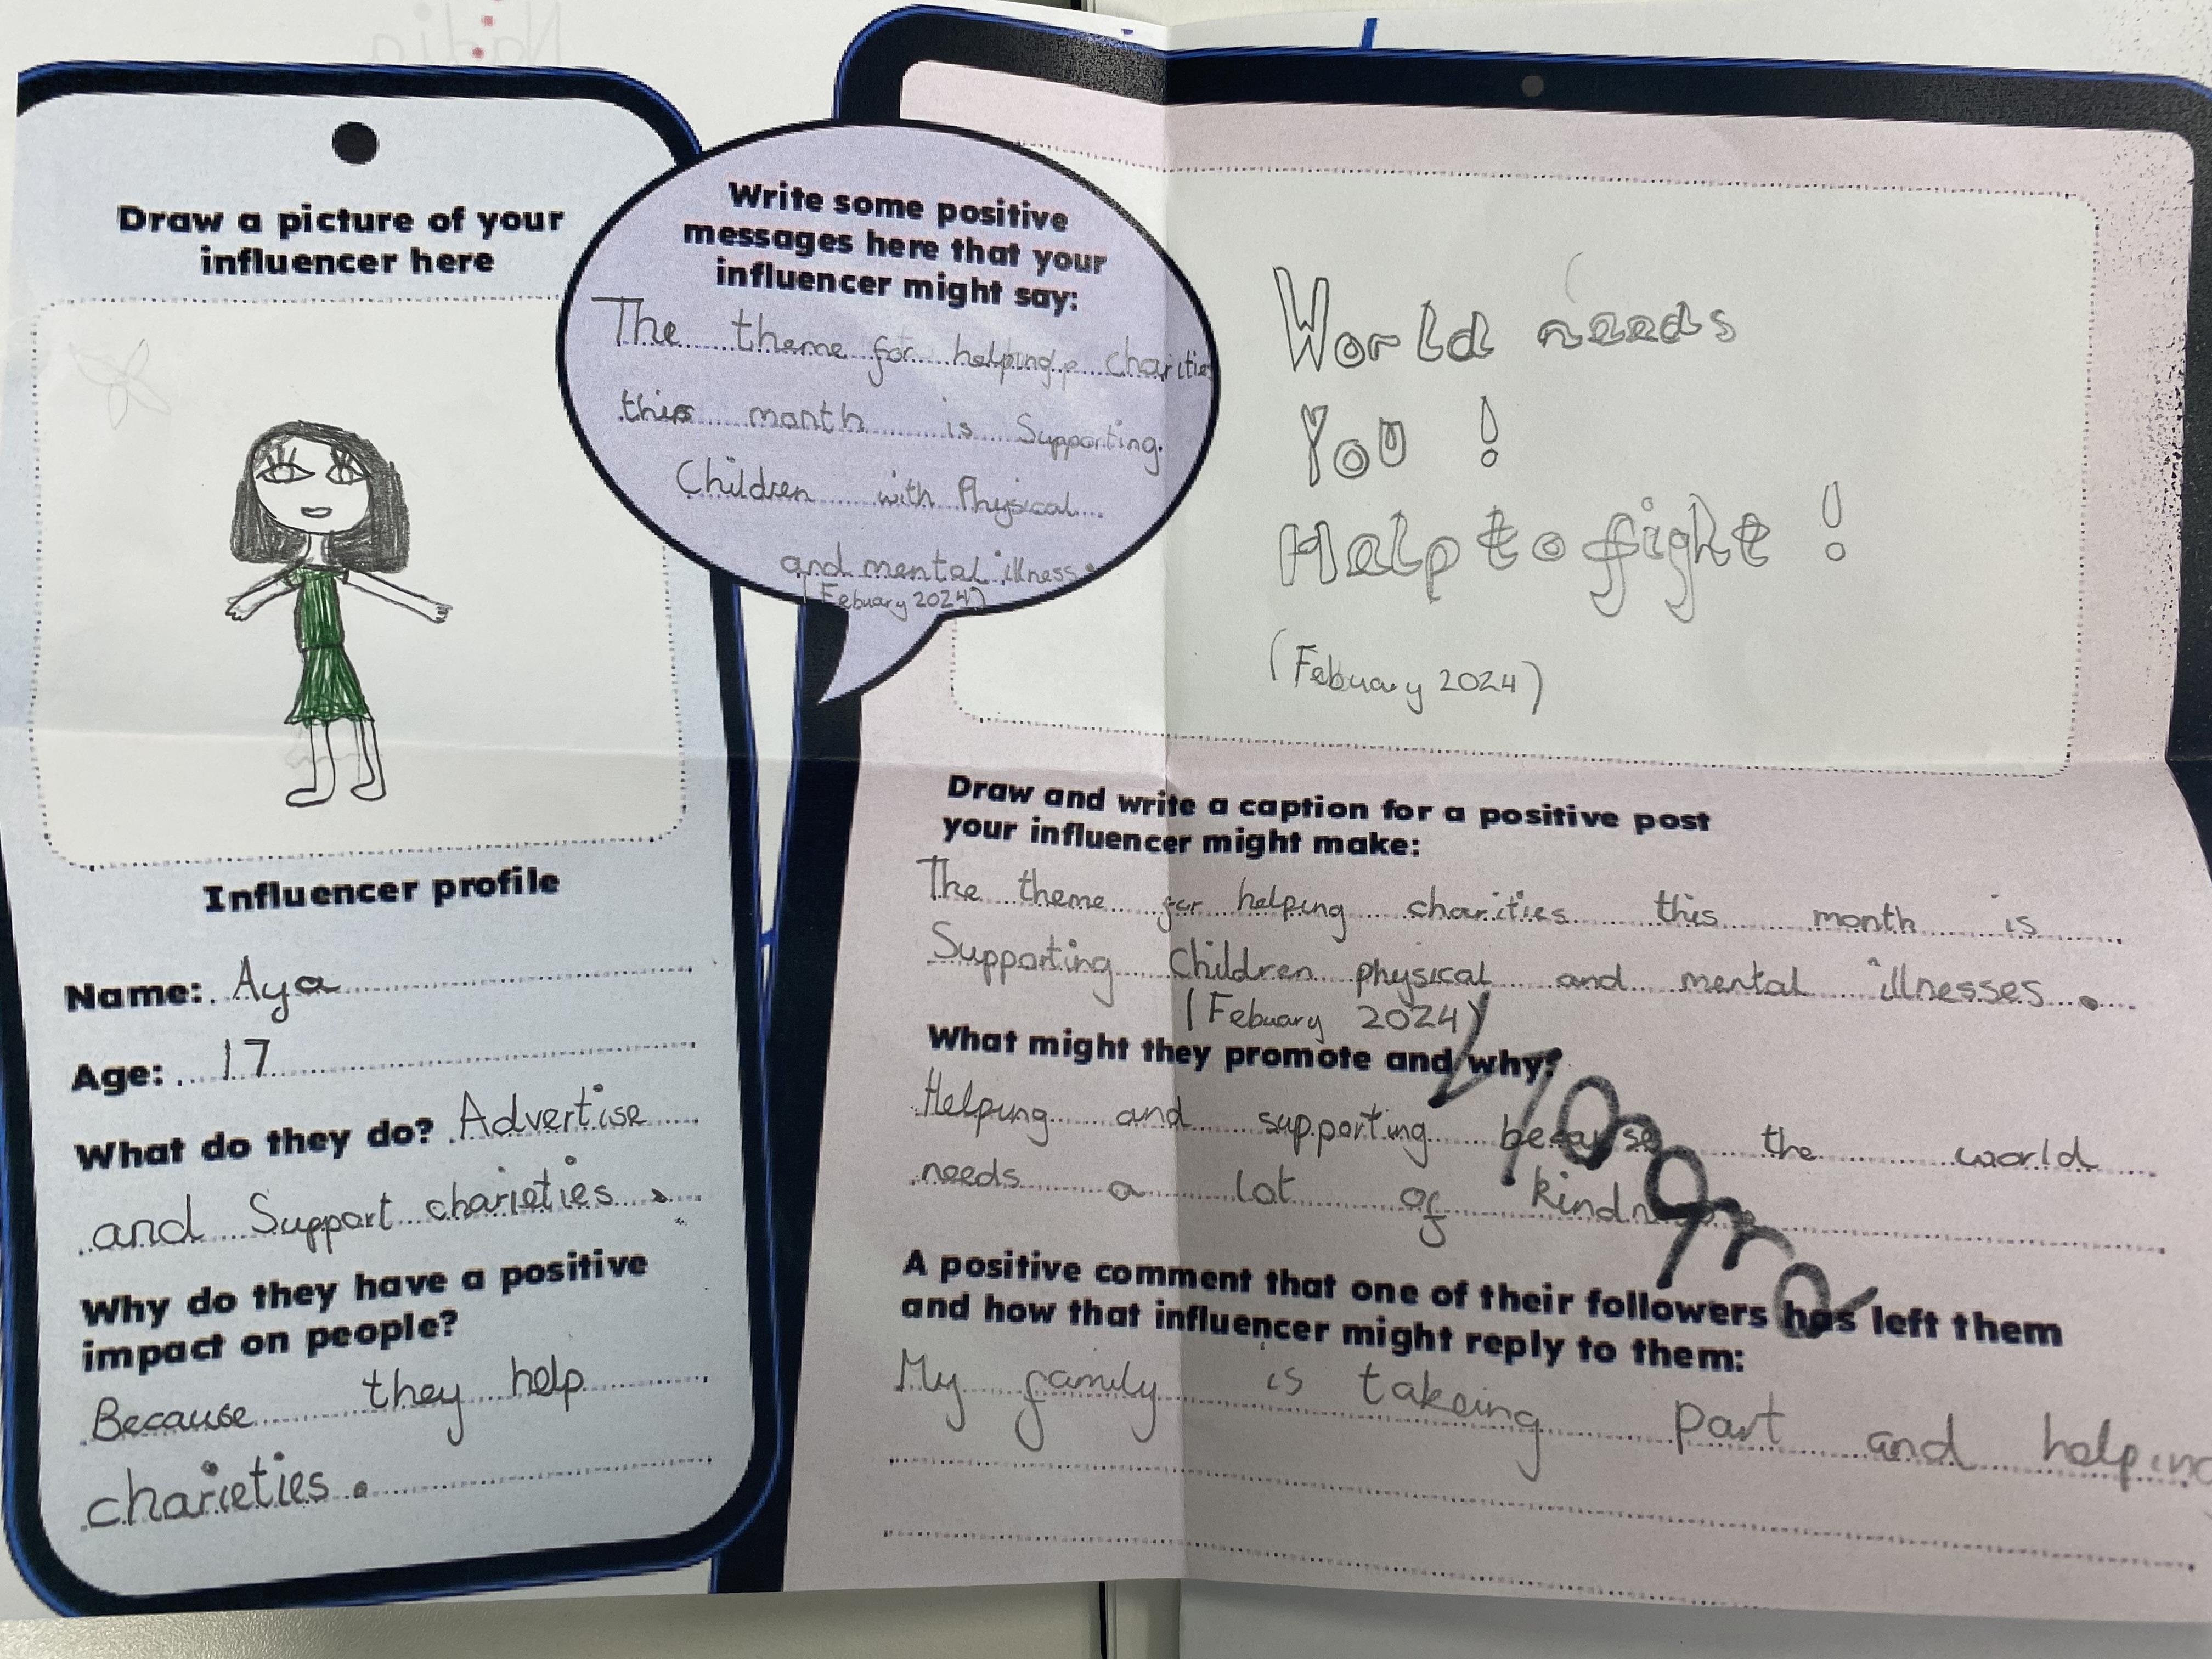 Draw a picture of your
influencer here
Influencer profile
Name: Aya
Age: 17
What do they do? Advertise
and Support charieties.
Why do they have a positive
impact on people?
Because they help
charieties.
Write some positive
messages here that your
influencer might say:
The theme for helping charities
this month is Supporting
Children with Physical
and mental illness.
(Febuary 2024)
World needs
You !
Help to fight !
(Febuary 2024)
Draw and write a caption for a positive post
your influencer might make:
The theme for helping charities this month is
Supporting Children physical and mental illnesses.
(Febuary 2024)
What might they promote and why?
Helping and supporting because the world
needs a lot of kindness
A positive comment that one of their followers has left them
and how that influencer might reply to them:
My family is takeing part and helping